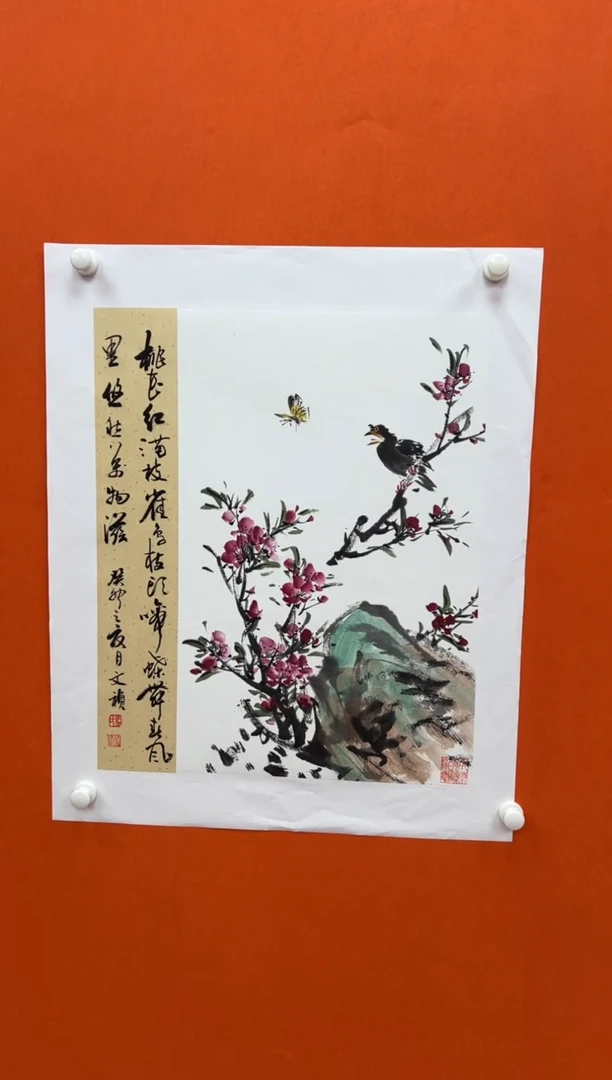 桃花红满枝雀鸟枝头啼蝶舞春风
里悠然万物滋 癸卯之夏月文祯